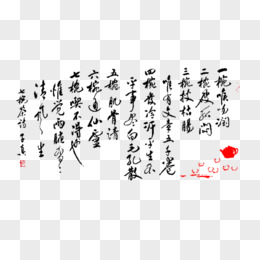 一碗喉吻润
二碗破孤闷
三碗搜枯肠
唯有文字五千卷
四碗发轻汗平生不
平事尽向毛孔散
五碗肌骨清
六碗通仙灵
七碗吃不得也
惟觉两腋习习
清风生
七碗茶诗